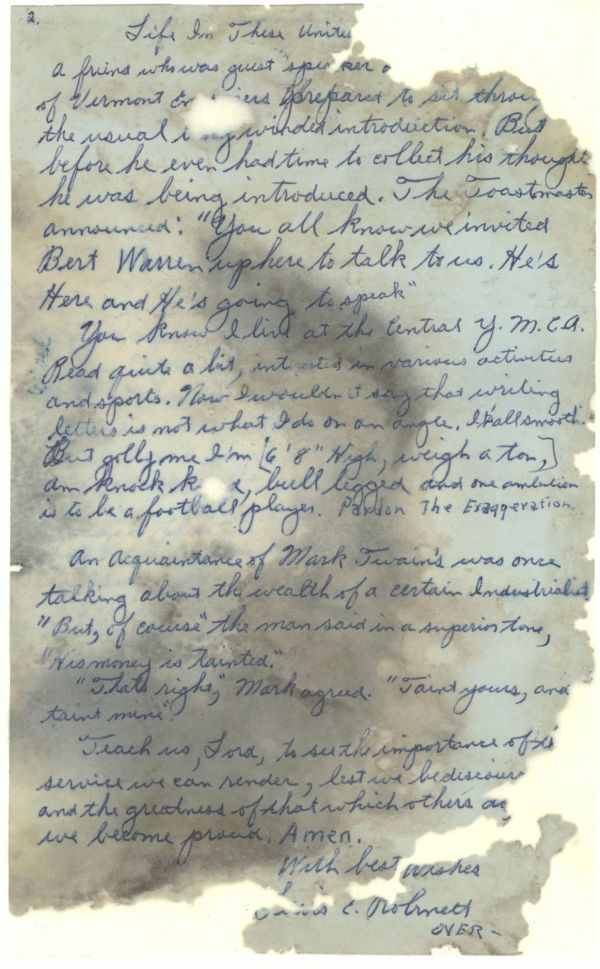 2.
Life In These Unite
A friend who was guest speaker
of Vermont prepared to sit throu
the usual winded introduction. But
before he even had time to collect his thought
he was being introduced. The Toastmaster
announced: "You all know we invited
Bert Warren up here to talk to us. He's
Here and He's going to speak"
You know I live at the Central Y.M.C.A.
Read quite a bit, in various activities
and sports. Now I wouldn't say that writing
letters is not what I do on an angle. all smooth.
But golly me I'm [6'8" High, weigh a ton,]
am knock k e, bull legged and one ambition
is to be a football player. Pardon The Exaggeration.
An Acquaintance of Mark Twain's was once
talking about the wealth of a certain Industrialist
"But, of couse" the man said in a superior tone,
"His money is tainted."
"Thats right," Mark agreed. "Taint yours, and
taint mine"
Teach us, Lord, to see the importance of
service we can render, lest we be discour
and the greatness of that which others
we become proud. Amen.
With best wishes
C.
OVER-